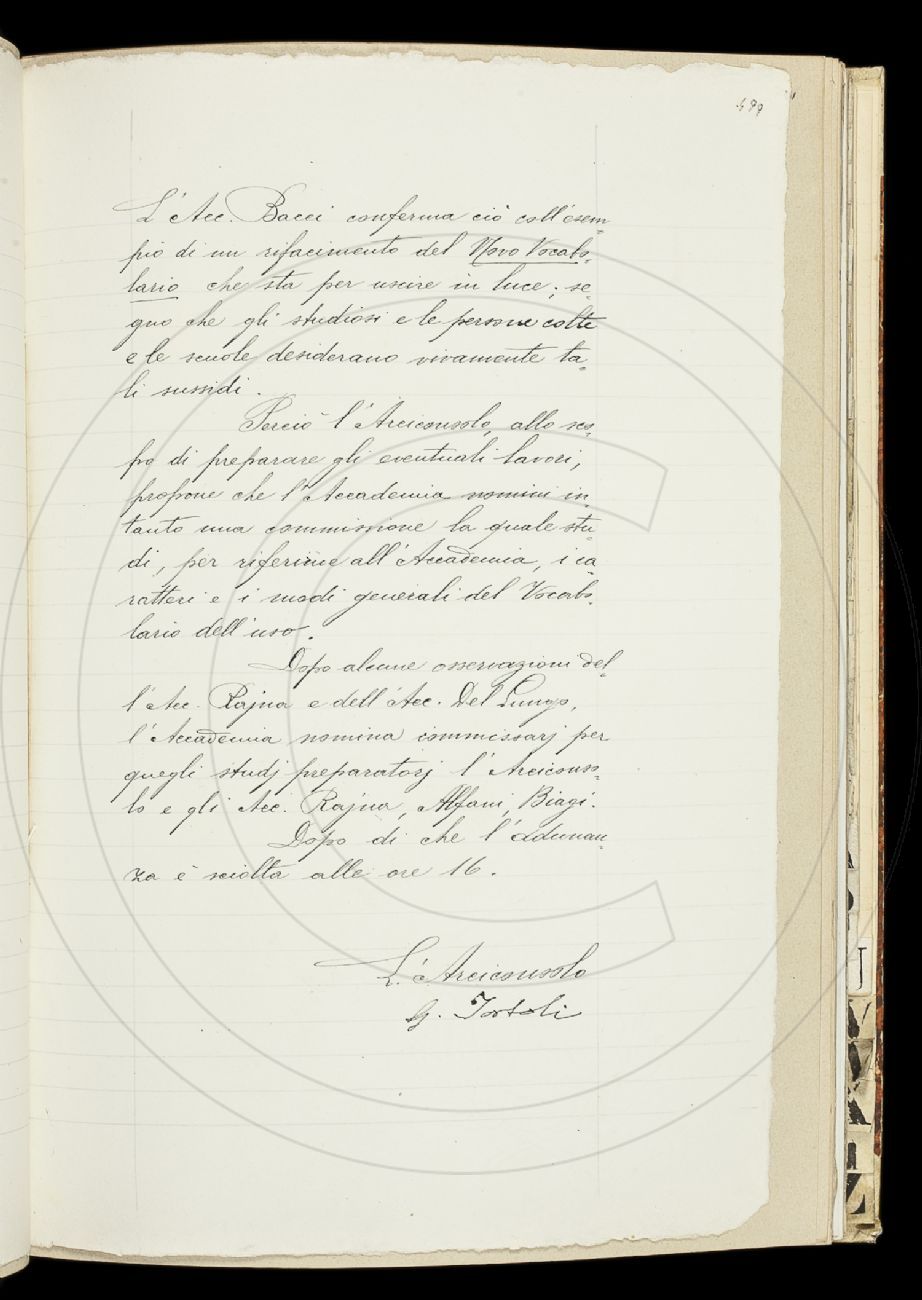 499
L'Acc. Bacci conferma ciò coll'esem-
pio di un rifacimento del Novo Vocabo-
lario che sta per uscire in luce; se-
gno che gli studiosi e le persone colte
e le scuole desiderano vivamente ta-
li sussidi.
Perciò l'Arciconsolo, allo sco-
po di preparare gli eventuali lavori,
propone che l'Accademia nomini in-
tanto una commissione la quale stu-
di, per riferirne all'Accademia, i ca-
ratteri e i modi generali del Vocabo-
lario dell'uso.
Dopo alcune osservazioni del-
l'Acc. Rajna e dell'Acc. Del Lungo,
l'Accademia nomina commissarj per
quegli studj preparatorj l'Arciconso-
lo e gli Acc. Rajna, Alfani, Biagi.
Dopo di che l'adunan-
za è sciolta alle ore 16.
L'Arciconsolo
G. Tortoli